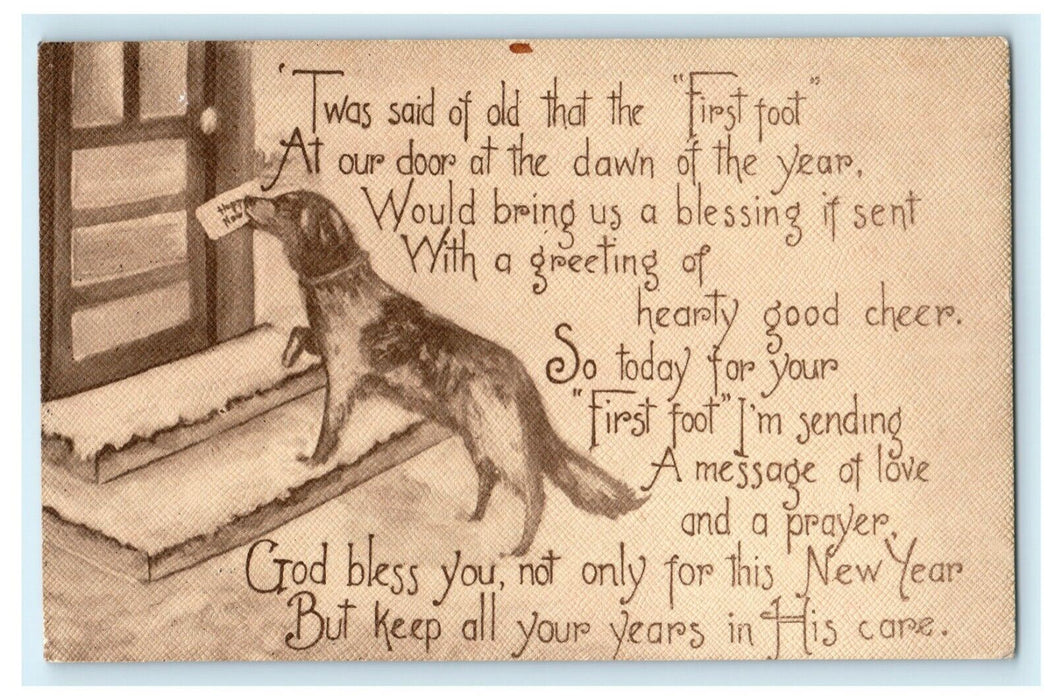 'Twas said of old that the "First foot"
At our door at the dawn of the year,
Would bring us a blessing if sent
With a greeting of
hearty good cheer.
So today for your
"First foot" I'm sending
A message of love
and a prayer,
God bless you, not only for this New Year
But keep all your years in His care.
Happy
New